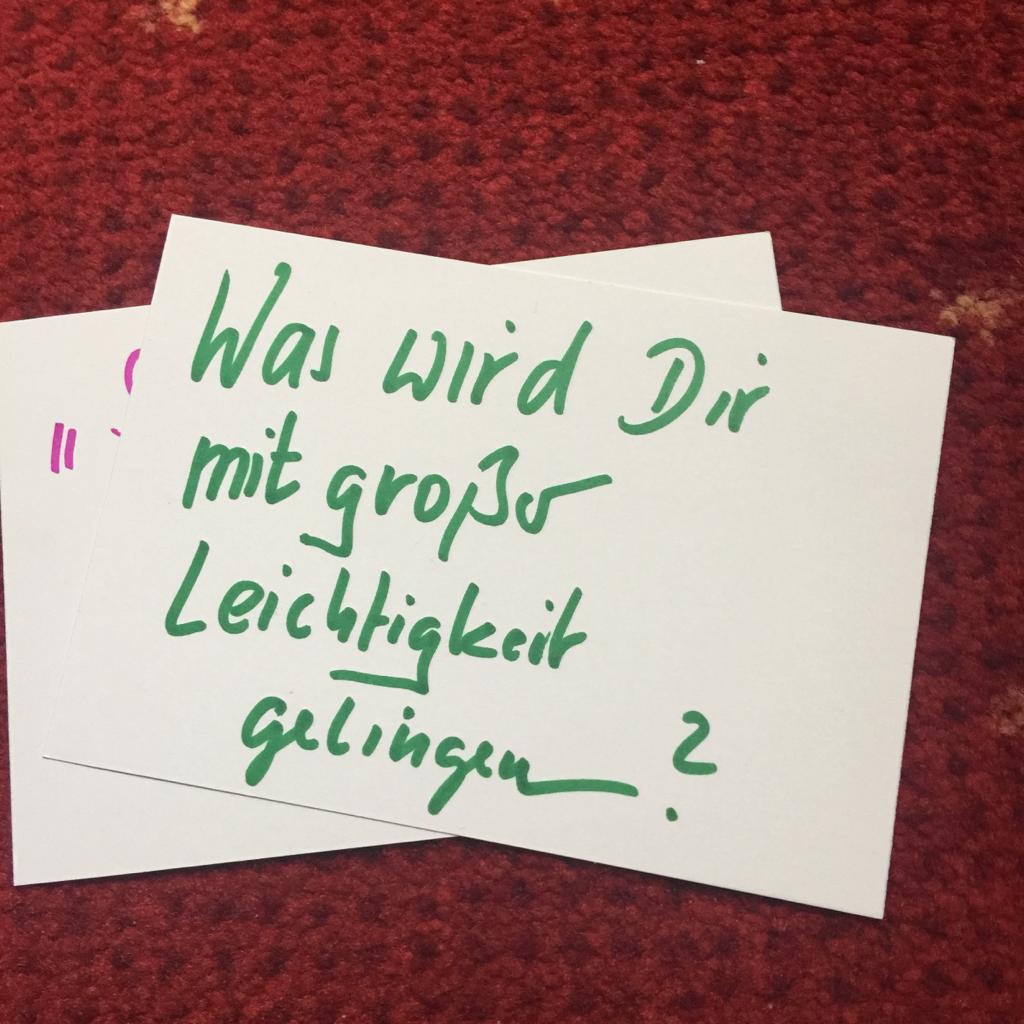 Was wird Dir
mit großer
Leichtigkeit
gelingen ?
"